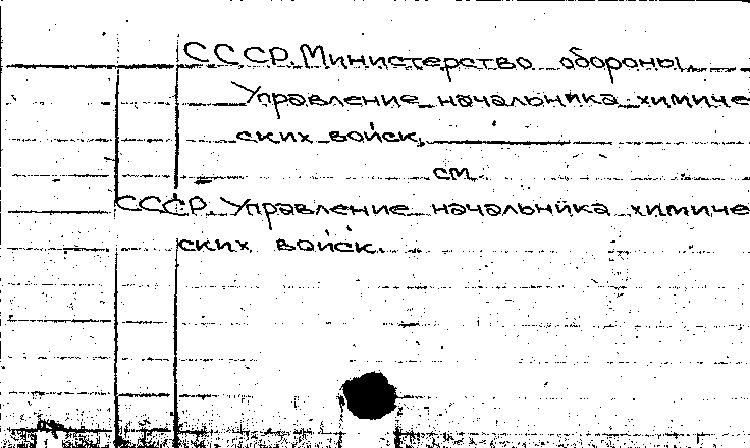 СССР. Министерство обороны.
Управление начальника химиче
ских войск,
см.
СССР. Управление начальника химиче
ских войск.